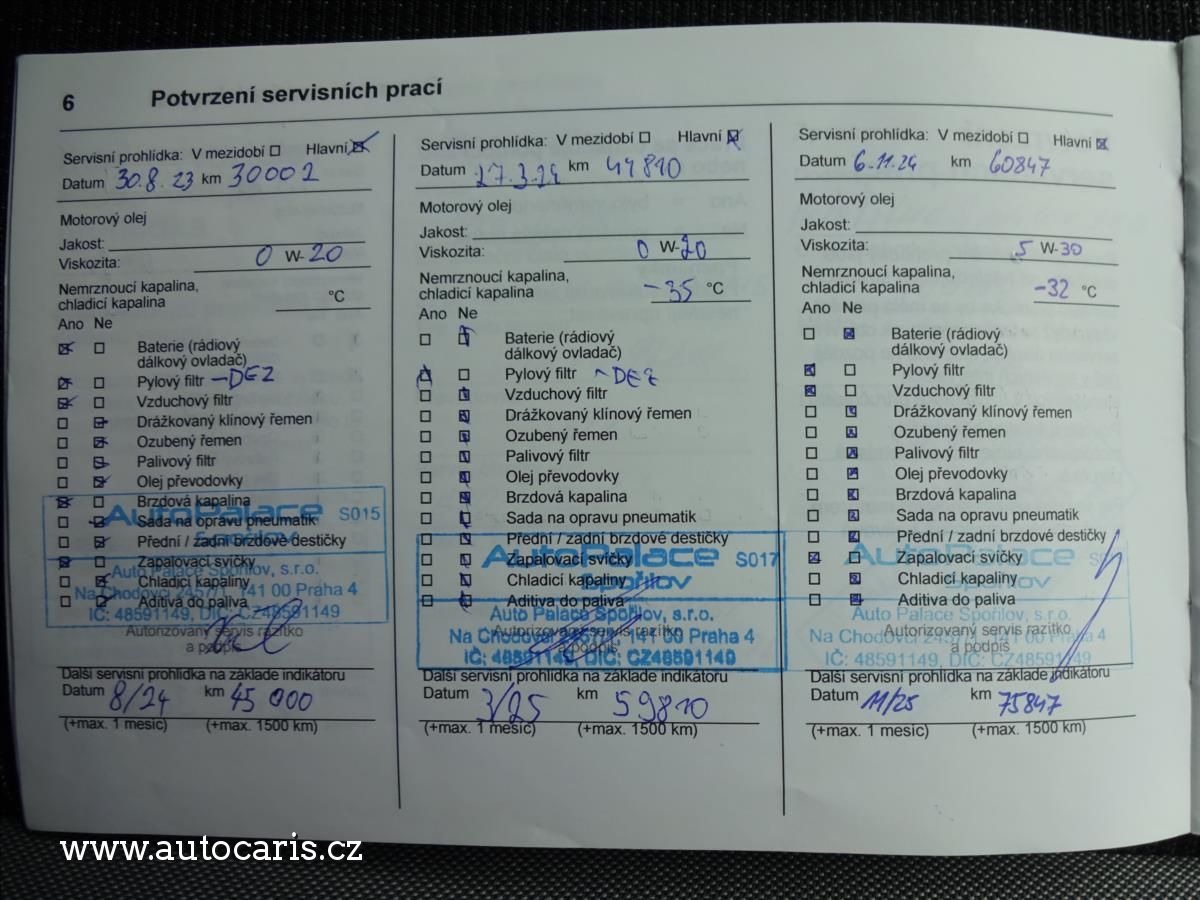 6 Potvrzení servisních prací
Servisní prohlídka: V mezidobí ☐ Hlavní ☒
Datum 30.8.23 km 30002
Motorový olej
Jakost:
Viskozita: 0 W-20
Nemrznoucí kapalina,
chladicí kapalina °C
Ano Ne
☒ ☐ Baterie (rádiový
dálkový ovladač)
☒ ☐ Pylový filtr - DEZ
☒ ☐ Vzduchový filtr
☐ ☒ Drážkovaný klínový řemen
☐ ☒ Ozubený řemen
☐ ☒ Palivový filtr
☐ ☒ Olej převodovky
☒ ☐ Brzdová kapalina
☐ ☒ Sada na opravu pneumatik
☐ ☒ Přední / zadní brzdové destičky
☒ ☐ Zapalovací svíčky
☐ ☒ Chladicí kapaliny
☐ ☒ Aditiva do paliva
AutoPalace S015
Spořilov
Auto Palace Spořilov, s.r.o.
Na Chodovci 2457/1, 141 00 Praha 4
IČ: 48591149, DIČ: CZ48591149
Autorizovaný servis razítko
a podpis
Další servisní prohlídka na základě indikátoru
Datum 8/24 km 45 000
(+max. 1 měsíc) (+max. 1500 km)
Servisní prohlídka: V mezidobí ☐ Hlavní ☒
Datum 27.3.24 km 44810
Motorový olej
Jakost:
Viskozita: 0 W-20
Nemrznoucí kapalina,
chladicí kapalina -35 °C
Ano Ne
☐ ☒ Baterie (rádiový
dálkový ovladač)
☒ ☐ Pylový filtr - DEZ
☐ ☒ Vzduchový filtr
☐ ☒ Drážkovaný klínový řemen
☐ ☒ Ozubený řemen
☐ ☒ Palivový filtr
☐ ☒ Olej převodovky
☐ ☒ Brzdová kapalina
☐ ☒ Sada na opravu pneumatik
☐ ☒ Přední / zadní brzdové destičky
☐ ☒ Zapalovací svíčky
☐ ☒ Chladicí kapaliny
☐ ☒ Aditiva do paliva
AutoPalace S017
Spořilov
Auto Palace Spořilov, s.r.o.
Na Chodovci 2457/1, 141 00 Praha 4
IČ: 48591149, DIČ: CZ48591149
Autorizovaný servis razítko
a podpis
Další servisní prohlídka na základě indikátoru
Datum 3/25 km 59810
(+max. 1 měsíc) (+max. 1500 km)
Servisní prohlídka: V mezidobí ☐ Hlavní ☒
Datum 6.11.24 km 60847
Motorový olej
Jakost:
Viskozita: 5 W-30
Nemrznoucí kapalina,
chladicí kapalina -32 °C
Ano Ne
☐ ☒ Baterie (rádiový
dálkový ovladač)
☒ ☐ Pylový filtr
☒ ☐ Vzduchový filtr
☐ ☒ Drážkovaný klínový řemen
☐ ☒ Ozubený řemen
☐ ☒ Palivový filtr
☐ ☒ Olej převodovky
☐ ☒ Brzdová kapalina
☐ ☒ Sada na opravu pneumatik
☐ ☒ Přední / zadní brzdové destičky
☒ ☐ Zapalovací svíčky
☐ ☒ Chladicí kapaliny
☐ ☒ Aditiva do paliva
AutoPalace
Spořilov
Auto Palace Spořilov, s.r.o.
Na Chodovci 2457/1, 141 00 Praha 4
IČ: 48591149, DIČ: CZ48591149
Autorizovaný servis razítko
a podpis
Další servisní prohlídka na základě indikátoru
Datum 11/25 km 75847
(+max. 1 měsíc) (+max. 1500 km)
www.autocaris.cz